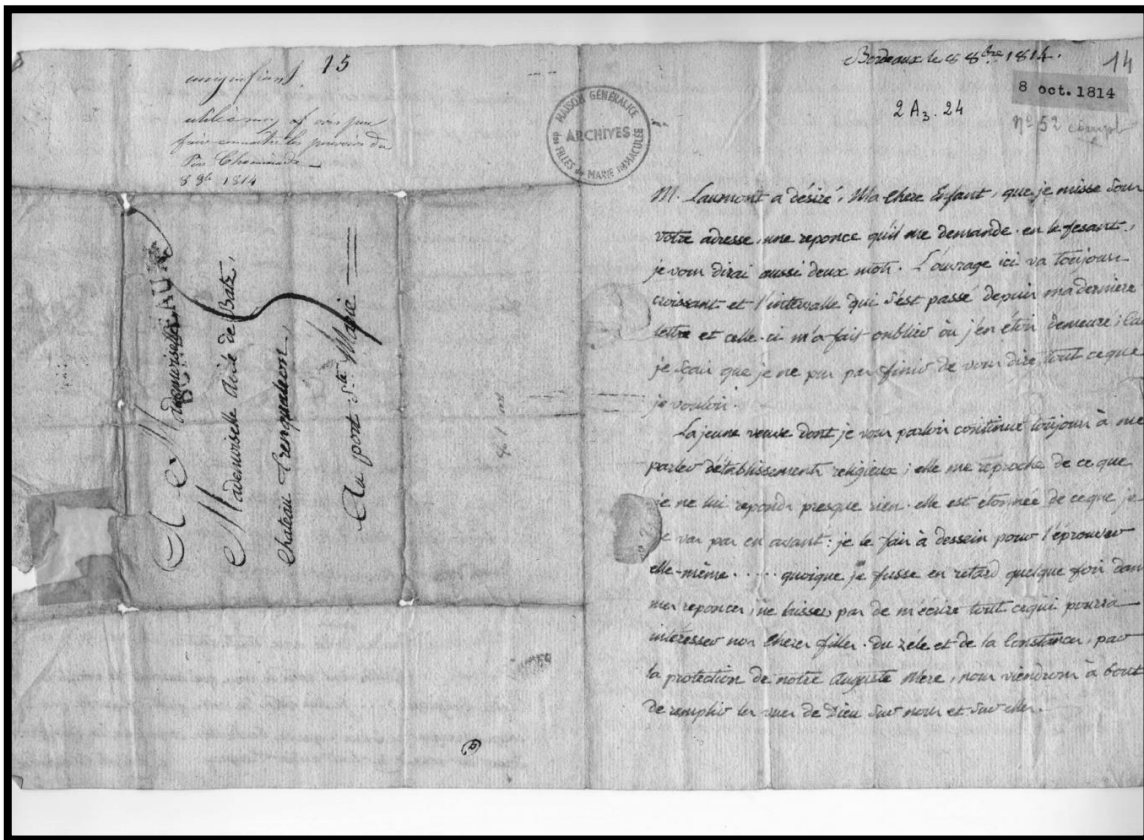 15
mon enfant
8 8bre 1814
A Mademoiselle
BORDEAUX
Mademoiselle Adèle de Batz,
Chateau Trenqueleon,
Au port Ste Marie
MAISON GÉNÉRALICE
ARCHIVES
des FILLES de MARIE IMMACULÉE
Bordeaux le 8 8bre 1814.
14
8 oct. 1814
2 A3. 24
n° 52
M. Laumont a désiré, Ma chere Enfant, que je misse sous
votre adresse, une reponce qu'il me demande. en le fesant,
je vous dirai aussi deux mots. L'ouvrage ici va toujours
croissant et l'intervalle qui s'est passé depuis ma derniere
lettre et celle-ci m'a fait oublier où j'en étois demeuré; car
je sçais que je ne pus pas finir de vous dire tout ce que
je voulois.
La jeune veuve dont je vous parlois continue toujours à me
parler d'établissements religieux; elle me reproche de ce que
je ne lui reponds presque rien. elle est etonnée de ce que je
ne vas pas en avant: je le fais à dessein pour l'éprouver
elle-même..... quoique je fusse en retard quelque fois dans
mes reponces, ne laissez pas de m'écrire tout ce qui pourra
intéresser nos cheres filles. du zele et de la constance, par
la protection de notre auguste Mere, nous viendrons à bout
de remplir les vues de Dieu sur nous et sur elles.